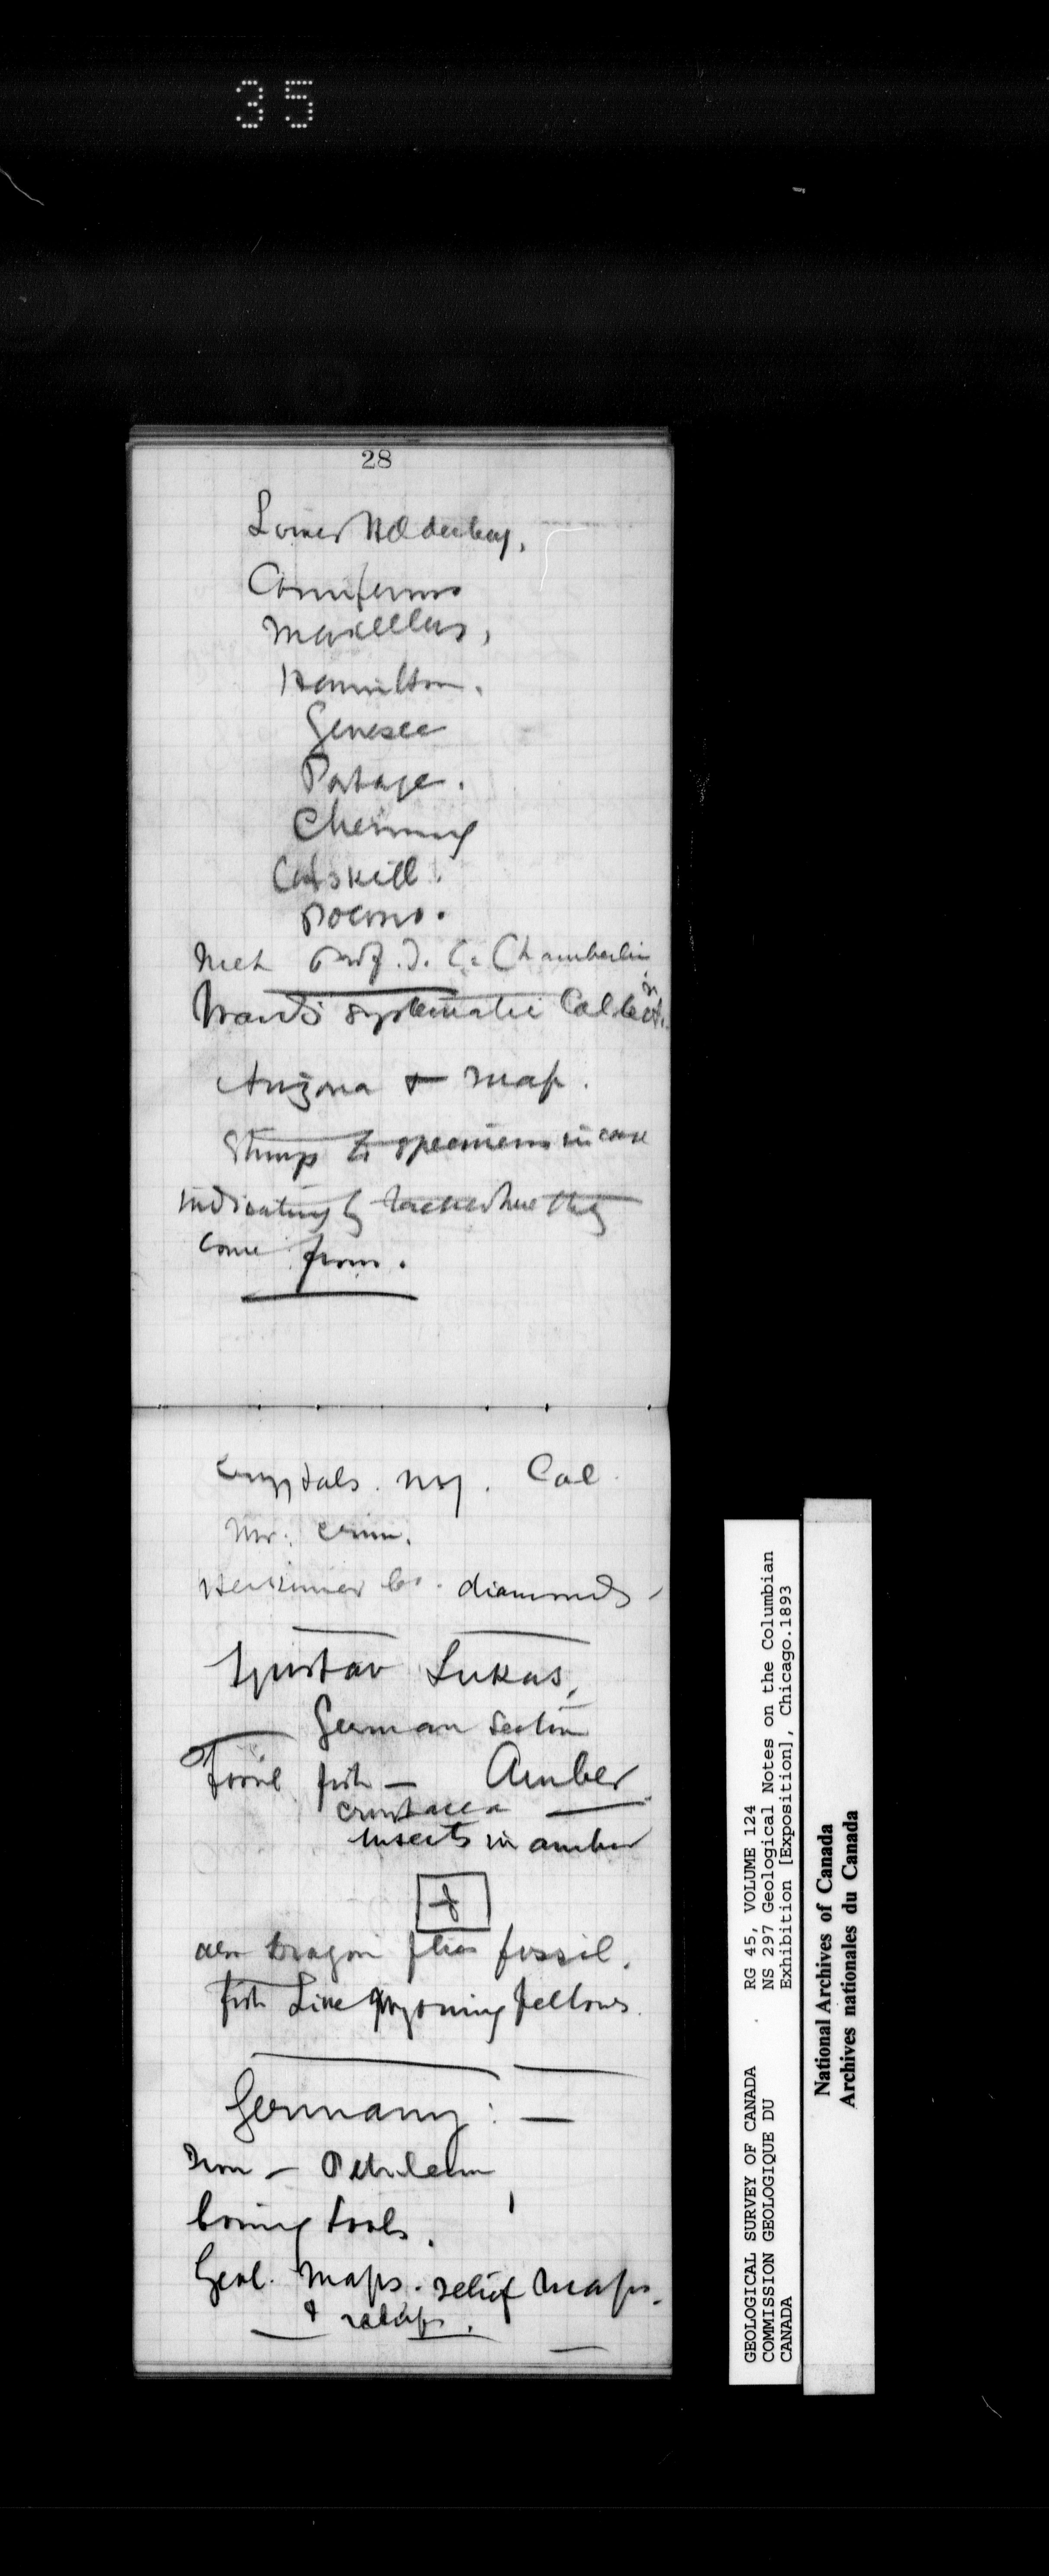 35
28
Lower Helderberg,
Corniferous
Marcellus,
Hamilton.
Genesee
Portage.
Chemung
Catskill.
Pocono.
Met Prof. T. C. Chamberlin
Ward's systematic Collect.n
Arizona & map.
Strings to specimens in case
indicating by where they
come from.
Crystals. N.Y. Cal
Mr.
Herkimer Co. diamonds
Gustav Lukas,
German section
Fossil fish — Amber
crustacea
Insects in amber
also Dragon flies fossil.
fish Like Wyoming fellows.
Germany: —
Iron — Petroleum
boring tools.
Geol. maps. relief maps.
&
GEOLOGICAL SURVEY OF CANADA RG 45, VOLUME 124
COMMISSION GEOLOGIQUE DU NS 297 Geological Notes on the Columbian
CANADA Exhibition [Exposition], Chicago.1893
National Archives of Canada
Archives nationales du Canada